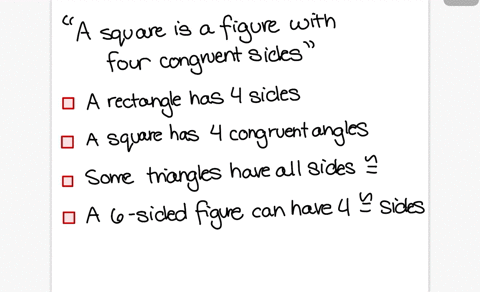 "A square is a figure with
four congruent sides"
A rectangle has 4 sides
A square has 4 congruent angles
Some triangles have all sides ≅
A 6-sided figure can have 4 ≅ sides